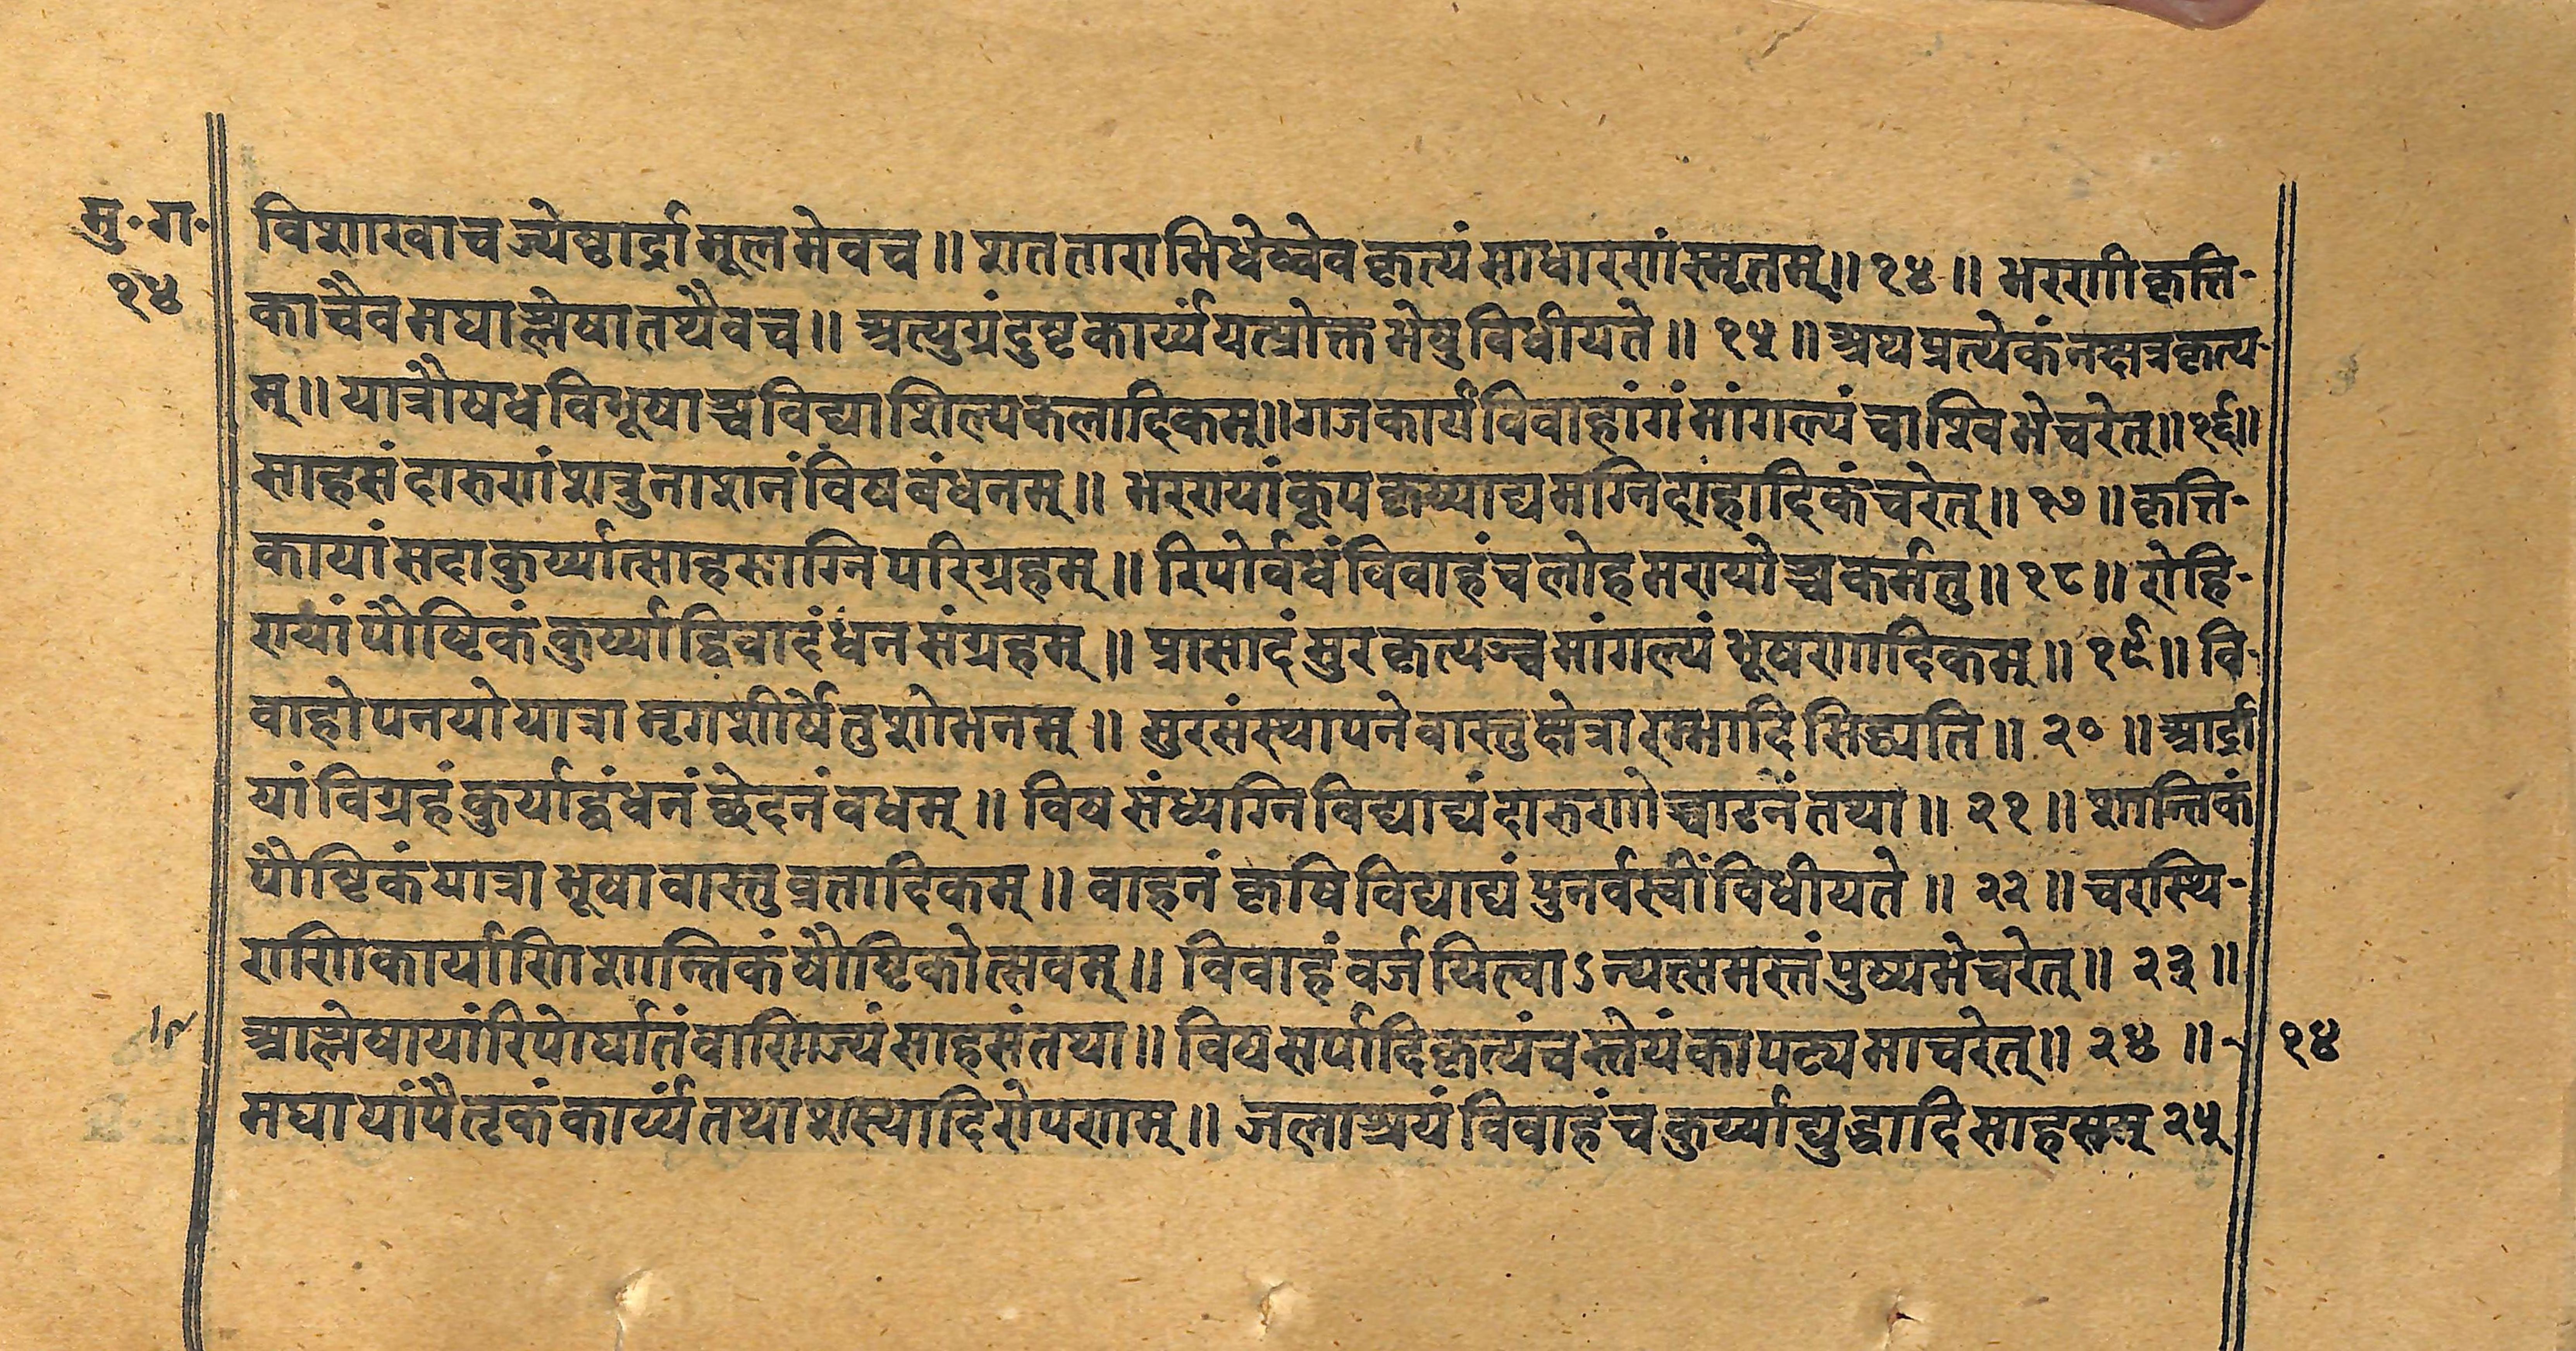 मु॰ ग॰
१४
विशाखाचज्येष्ठार्द्रामूलमेवच॥ शतताराभिधेष्वेवकृत्यंसाधारणंस्मृतम्॥१४॥ भरणीकृत्ति-
काचैवमघाश्लेषातथैवच॥ अत्युग्रंदुष्टकार्य्यंयत्प्रोक्तभेषुविधीयते॥ १५॥ अथप्रत्येकंनक्षत्रकृत्य-
म्॥ यात्रौषधविभूषाश्चविद्याशिल्पकलादिकम्॥गजकार्यंविवाहांगंमांगल्यंचाश्विभेचरेत्॥१६॥
साहसंदारुणंशत्रुनाशनंविषबंधनम्॥ भरण्यांकूपकृष्याद्यमग्निदाहादिकंचरेत्॥१७॥कृत्ति-
कायांसदाकुर्य्यात्साहसाग्निपरिग्रहम्॥ रिपोर्वधंविवाहंचलोहमण्योश्चकर्मतु॥१८॥ रोहि-
ण्यांपौष्टिकंकुर्य्याद्विवादंधनसंग्रहम्॥ प्रासादंसुरकृत्यञ्चमांगल्यंभूषणादिकम्॥ १९॥ वि-
वाहोपनयोयात्रामृगशीर्षेतुशोभनम्॥ सुरसंस्थापनेवास्तुक्षेत्रारम्भादिसिद्ध्यति॥ २०॥आर्द्रा
यांविग्रहंकुर्याद्बंधनंछेदनंवधम्॥ विषसंध्यग्निविद्याद्यंदारुणोच्चाटनंतथा॥ २१॥ शान्तिकं
पौष्टिकंयात्राभूषावास्तुव्रतादिकम्॥ वाहनंकृषिविद्याद्यंपुनर्वस्वोंविधीयते॥ २२॥ चरस्थि-
राणिकार्याणिशान्तिकंपौष्टिकोत्सवम्॥ विवाहंवर्जयित्वाऽन्यत्समस्तंपुष्यभेचरेत्॥ २३॥
आश्लेषायांरिपोर्घातंवाणिज्यंसाहसंतथा॥ विषसर्पादिकृत्यंचस्तेयंकापट्यमाचरेत्॥ २४॥
१४
मघायांपैतृकंकार्य्यंतथाशस्यादिरोपणम्॥ जलाश्रयंविवाहंचकुर्य्याद्युद्धादिसाहसम् २५